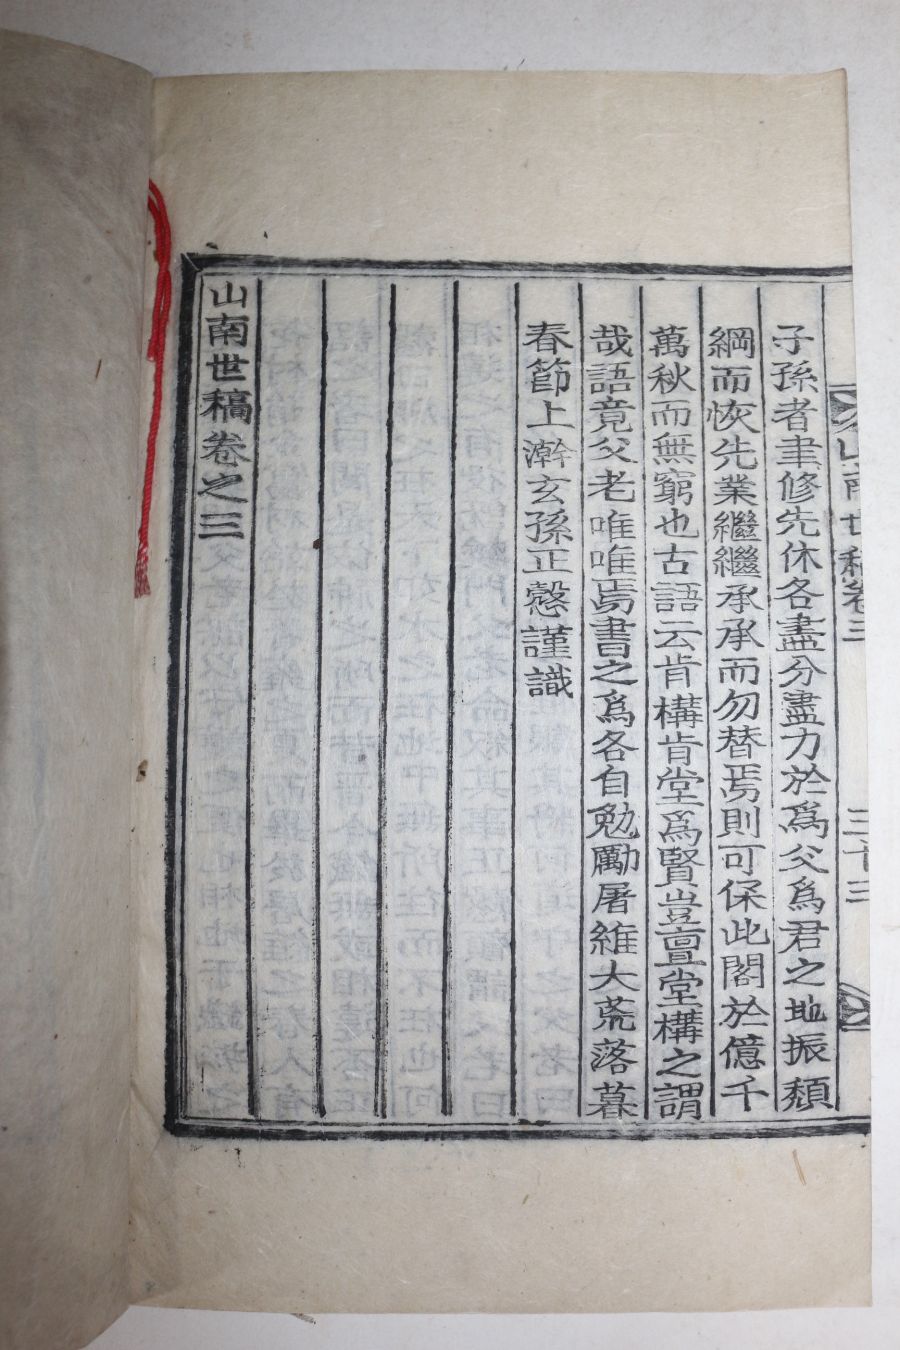 山南世稿卷三
三十三
子孫者聿修先休各盡分盡力於爲父爲君之地振頹
綱而恢先業繼繼承承而勿替焉則可保此閣於億千
萬秋而無窮也古語云肯構肯堂爲賢豈亶堂構之謂
哉語竟父老唯唯焉書之爲各自勉勵屠維大荒落暮
春節上澣玄孫正慤謹識
山南世稿卷之三